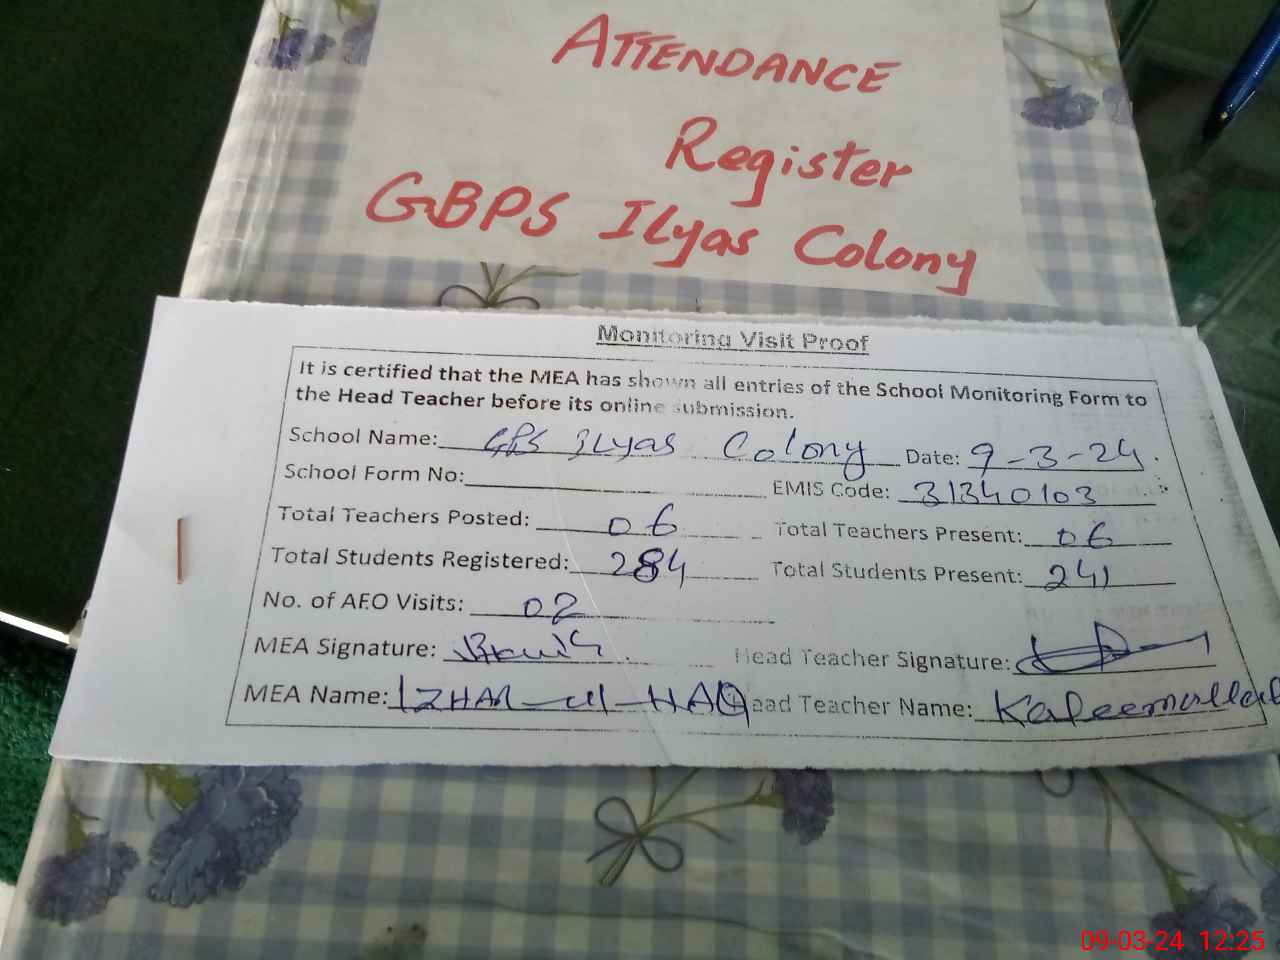 ATTENDANCE
Register
GBPS Ilyas Colony
Monitoring Visit Proof
It is certified that the MEA has shown all entries of the School Monitoring Form to
the Head Teacher before its online submission.
School Name: GPS Ilyas Colony Date: 9-3-24.
School Form No: EMIS Code: 31340103
Total Teachers Posted: 06 Total Teachers Present: 06
Total Students Registered: 284 Total Students Present: 241
No. of AEO Visits: 02
MEA Signature: Head Teacher Signature:
MEA Name: IZHAR-ul-HAQ Head Teacher Name: Kaleemullah
09-03-24 12:25